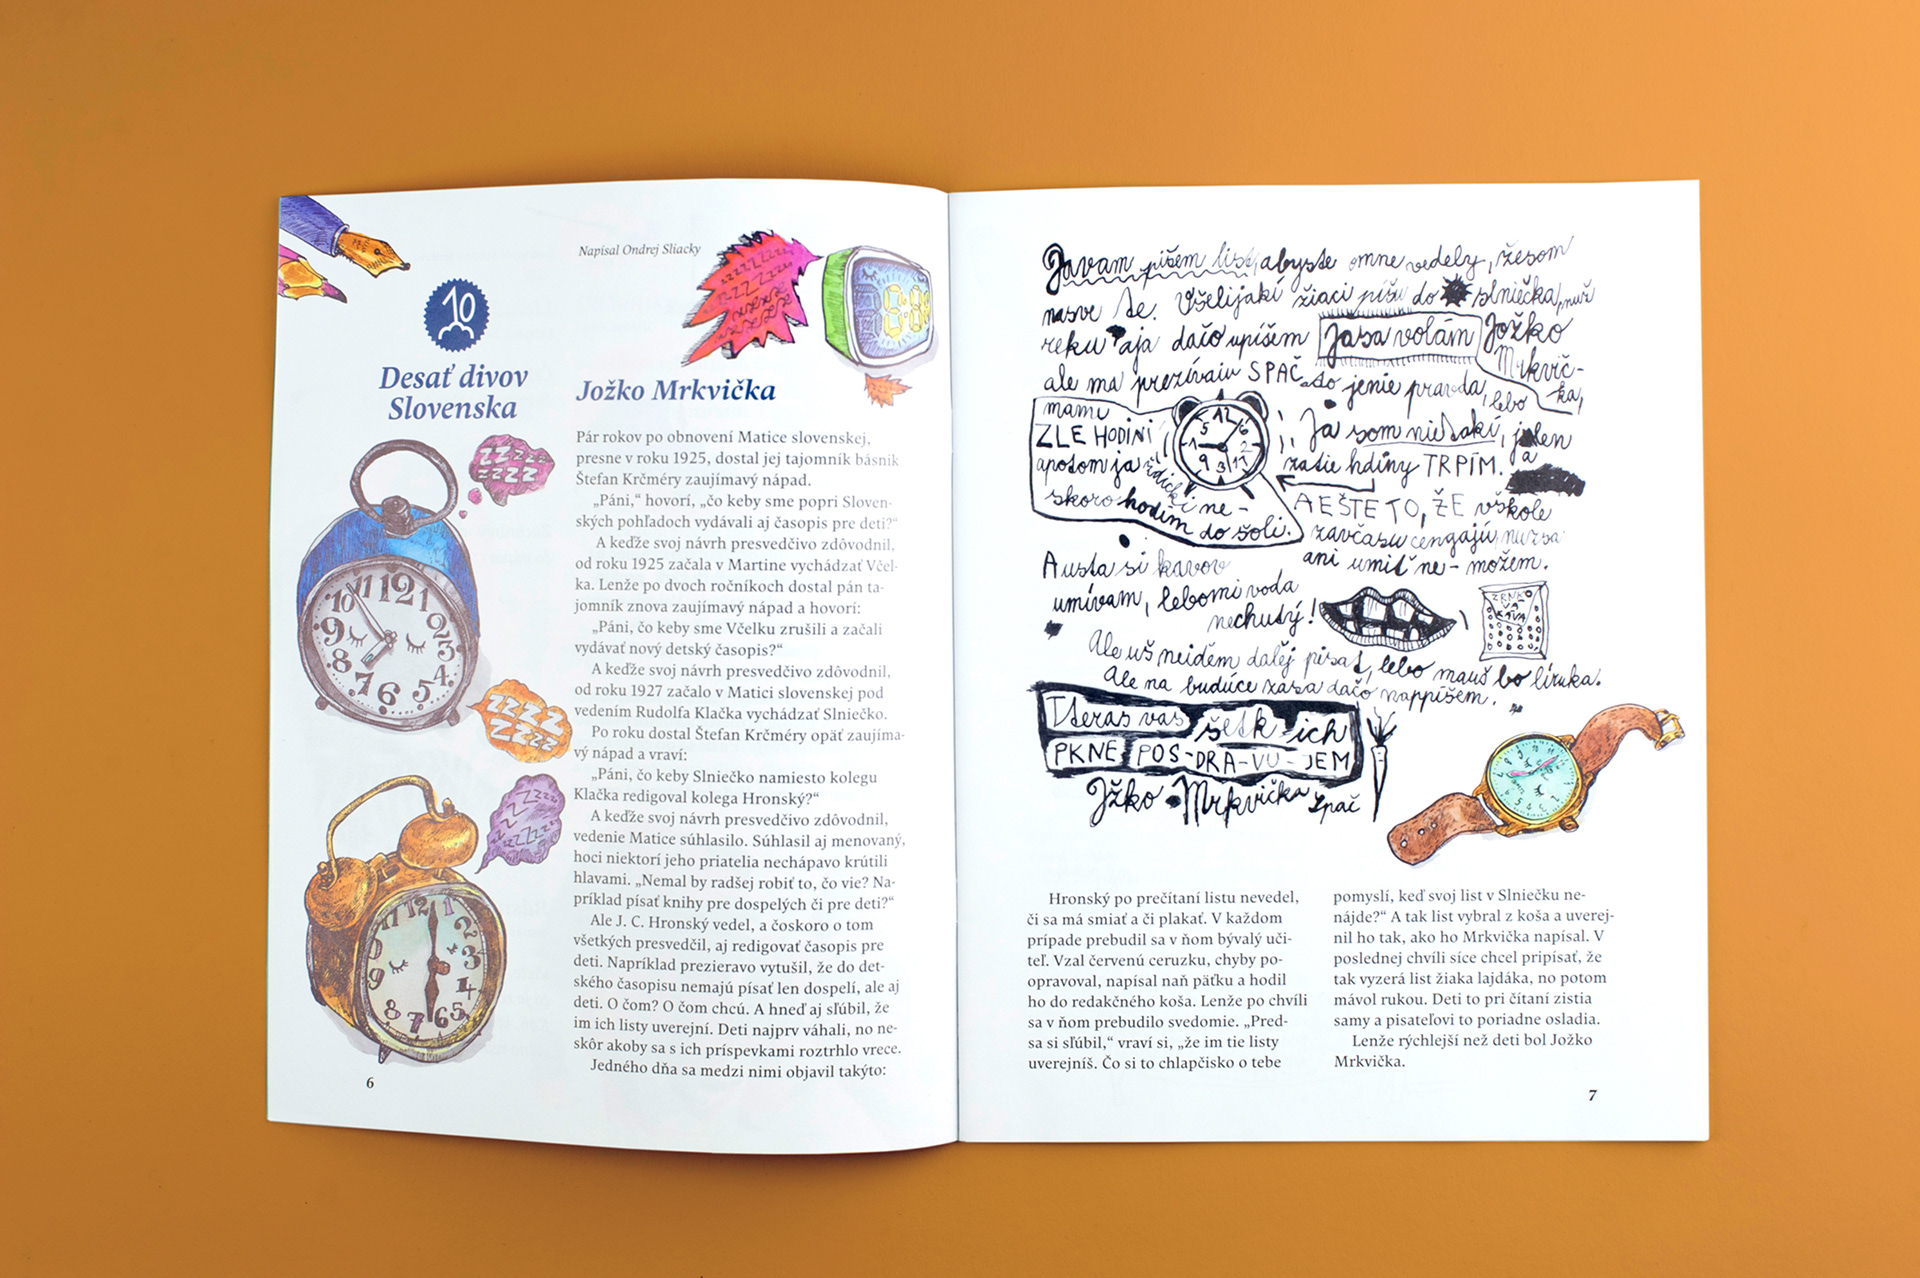 Napísal Ondrej Sliacky
10
Desať divov
Slovenska
Jožko Mrkvička
Pár rokov po obnovení Matice slovenskej,
presne v roku 1925, dostal jej tajomník básnik
Štefan Krčméry zaujímavý nápad.
„Páni,“ hovorí, „čo keby sme popri Sloven-
ských pohľadoch vydávali aj časopis pre deti?“
A keďže svoj návrh presvedčivo zdôvodnil,
od roku 1925 začala v Martine vychádzať Včel-
ka. Lenže po dvoch ročníkoch dostal pán ta-
jomník znova zaujímavý nápad a hovorí:
„Páni, čo keby sme Včelku zrušili a začali
vydávať nový detský časopis?“
A keďže svoj návrh presvedčivo zdôvodnil,
od roku 1927 začalo v Matici slovenskej pod
vedením Rudolfa Klačka vychádzať Slniečko.
Po roku dostal Štefan Krčméry opäť zaujíma-
vý nápad a vraví:
„Páni, čo keby Slniečko namiesto kolegu
Klačka redigoval kolega Hronský?“
A keďže svoj návrh presvedčivo zdôvodnil,
vedenie Matice súhlasilo. Súhlasil aj menovaný,
hoci niektorí jeho priatelia nechápavo krútili
hlavami. „Nemal by radšej robiť to, čo vie? Na-
príklad písať knihy pre dospelých či pre deti?“
Ale J. C. Hronský vedel, a čoskoro o tom
všetkých presvedčil, aj redigovať časopis pre
deti. Napríklad prezieravo vytušil, že do det-
ského časopisu nemajú písať len dospelí, ale aj
deti. O čom? O čom chcú. A hneď aj sľúbil, že
im ich listy uverejní. Deti najprv váhali, no ne-
skôr akoby sa s ich príspevkami roztrhlo vrece.
Jedného dňa sa medzi nimi objavil takýto:
6
Javam píšem list, abyste omne vedely, žesom
nasve te. Všelijakí žiaci píšu do slniečka, nuž
reku aja dačo upíšem Jasa volám Jožko
Mrkvič-
ka,
ale ma prezívaiu SPAČ, to jenie pravda, lebo
mamu
ZLE HODINI
apotom ja ždicki ne-
skoro hodim do šoli.
Ja som nietakí, jalen
zatie hdiny TRPÍM.
A EŠTE TO, ŽE vškole
zavčasu cengajú, nuzsa
ani umiť ne-možem.
A usta si kavov
umívam, lebomi voda
nechudý!
ZRNKO
VÁ
KÁVA
Ale uš neidem ďalej písat, lebo mauš bo líruka.
Ale na budúce zasa dačo nappíšem.
Tteras vas šetk-ich
PKNE POS-DRA-VU-JEM
Jžko Mrkvička Spač
Hronský po prečítaní listu nevedel,
či sa má smiať a či plakať. V každom
prípade prebudil sa v ňom bývalý uči-
teľ. Vzal červenú ceruzku, chyby po-
opravoval, napísal naň päťku a hodil
ho do redakčného koša. Lenže po chvíli
sa v ňom prebudilo svedomie. „Pred-
sa si sľúbil,“ vraví si, „že im tie listy
uverejníš. Čo si to chlapčisko o tebe
pomyslí, keď svoj list v Slniečku ne-
nájde?“ A tak list vybral z koša a uverej-
nil ho tak, ako ho Mrkvička napísal. V
poslednej chvíli síce chcel pripísať, že
tak vyzerá list žiaka lajdáka, no potom
mávol rukou. Deti to pri čítaní zistia
samy a pisateľovi to poriadne osladia.
Lenže rýchlejší než deti bol Jožko
Mrkvička.
7